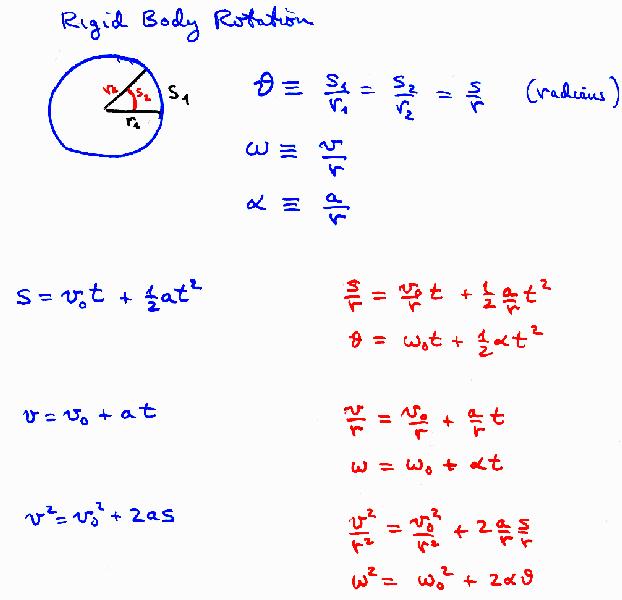 Rigid Body Rotation
r₂ s₂ S₁
r₁
θ ≡ s₁/r₁ = s₂/r₂ = s/r (radians)
ω ≡ v/r
α ≡ a/r
s = v₀t + ½at²
s/r = v₀/r t + ½ a/r t²
θ = ω₀t + ½αt²
v = v₀ + at
v/r = v₀/r + a/r t
ω = ω₀ + αt
v² = v₀² + 2as
v²/r² = v₀²/r² + 2 a/r s/r
ω² = ω₀² + 2αθ